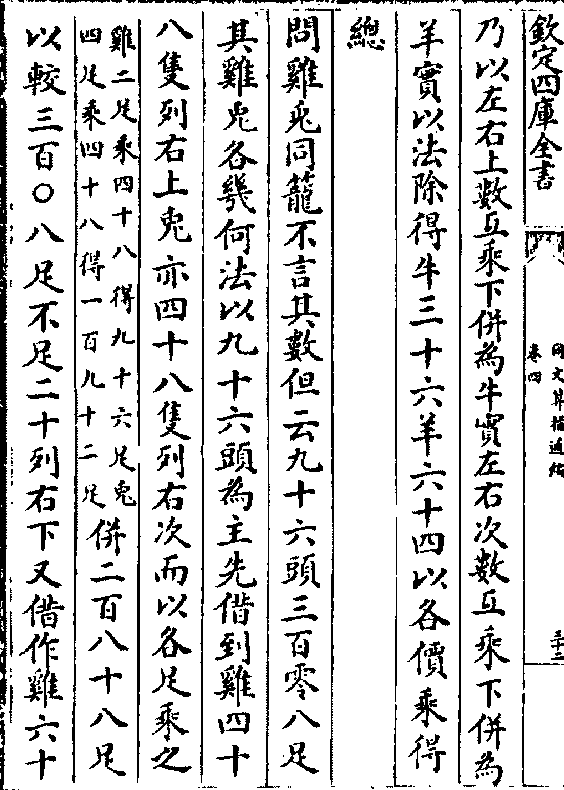 欽定四庫全書
同文算指通編
卷四
三十二
乃以左右上數互乘下併為牛實左右次數互乘下併為
羊實以法除得牛三十六羊六十四以各價乘得
總
問雞兎同籠不言其數但云九十六頭三百零八足
其雞兎各幾何法以九十六頭為主先借到雞四十
八隻列右上兎亦四十八隻列右次而以各足乘之
雞二足乘四十八得九十六足兎
四足乘四十八得一百九十二足
併二百八十八足
以較三百〇八足不足二十列右下又借作雞六十